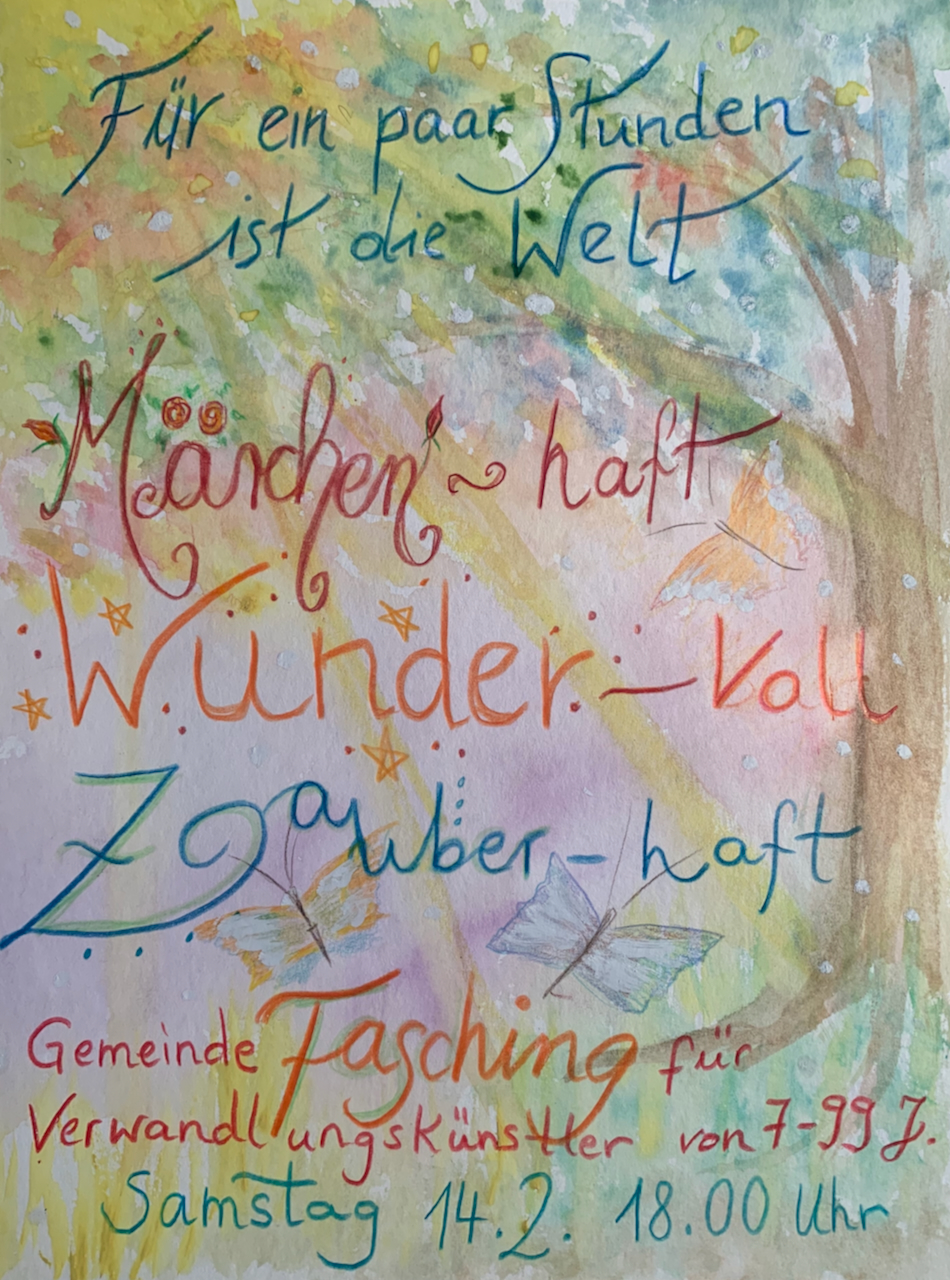 Für ein paar Stunden
ist die Welt
Märchen ~ haft
Wunder - Voll
Zauber - haft
Gemeinde Fasching für
Verwandlungskünstler von 7-99 J.
Samstag 14.2. 18.00 Uhr